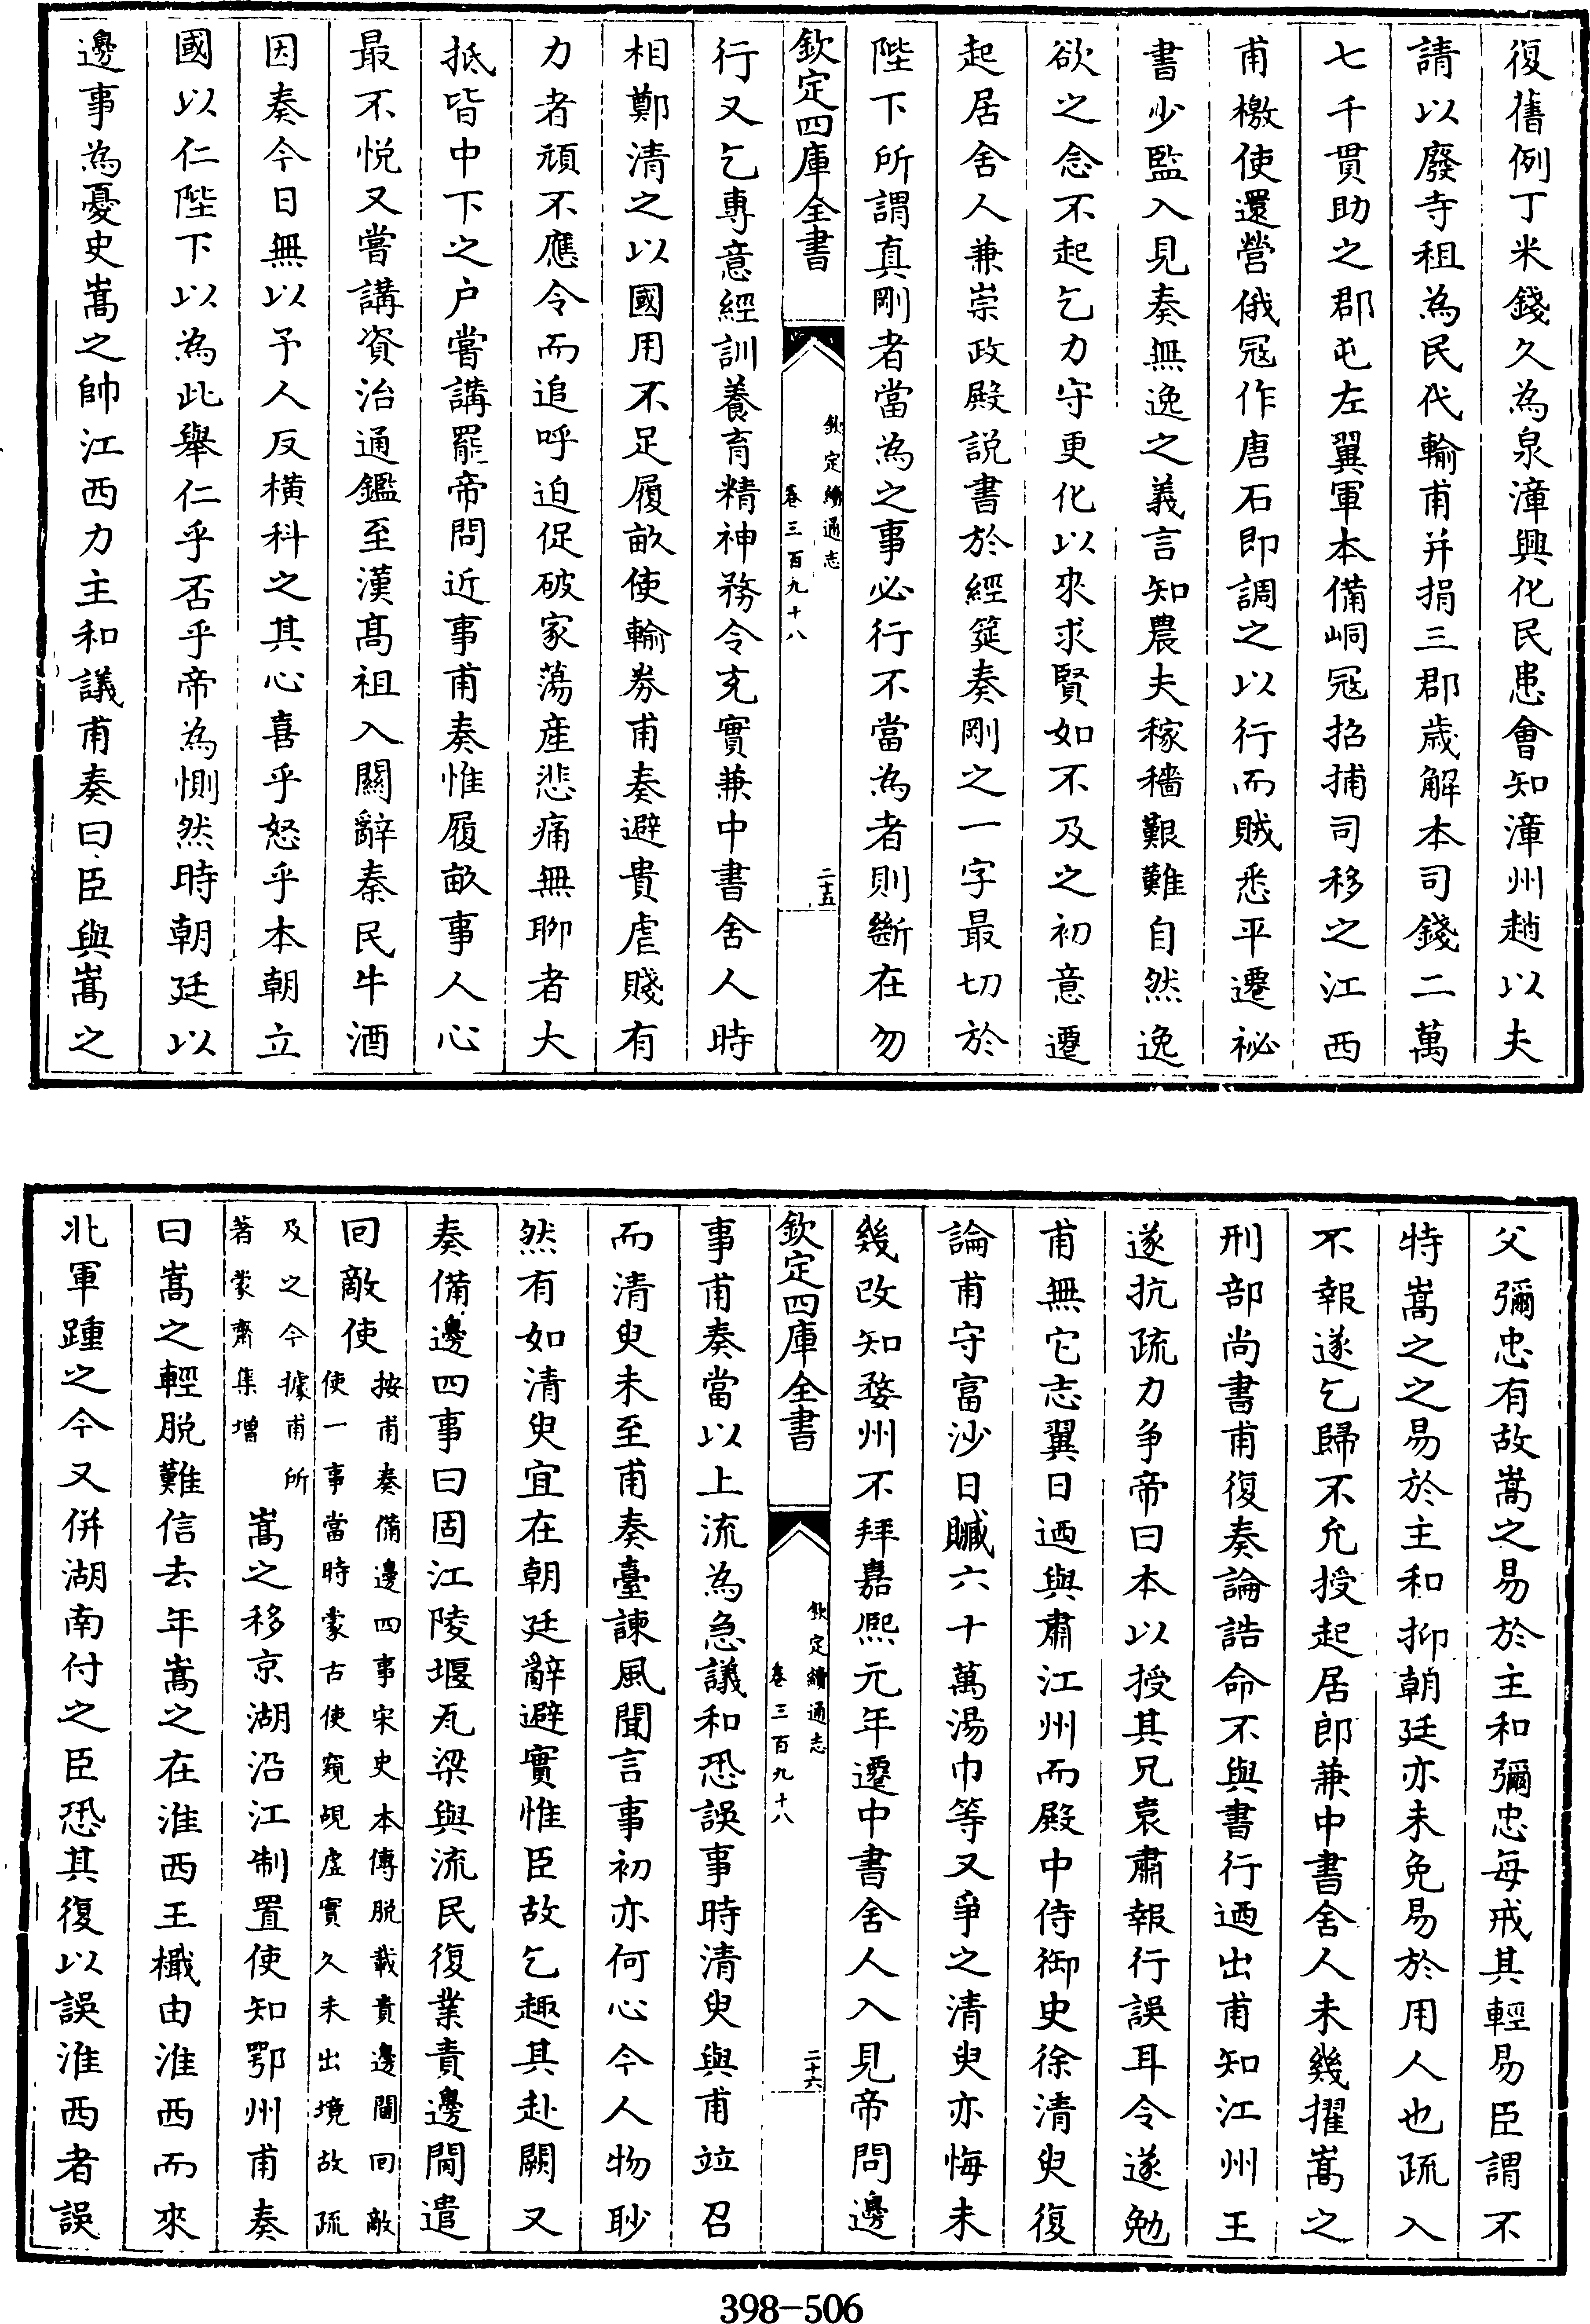 復舊例丁米錢久為泉漳興化民患會知漳州趙以夫
請以廢寺租為民代輸甫并捐三郡歲解本司錢二萬
七千貫助之郡屯左翼軍本備峒冦招捕司移之江西
甫檄使還營俄冦作唐石即調之以行而賊悉平遷祕
書少監入見奏無逸之義言知農夫稼穡艱難自然逸
欲之念不起乞力守更化以來求賢如不及之初意遷
起居舍人兼崇政殿説書於經筵奏剛之一字最切於
陛下所謂真剛者當為之事必行不當為者則斷在勿
欽定四庫全書
欽定續通志
卷三百九十八
二十五
行又乞專意經訓養育精神務令充實兼中書舍人時
相鄭清之以國用不足履畝使輸券甫奏避貴虐賤有
力者頑不應令而追呼迫促破家蕩産悲痛無聊者大
抵皆中下之户嘗講罷帝問近事甫奏惟履畝事人心
最不悦又嘗講資治通鑑至漢髙祖入關辭秦民牛酒
因奏今日無以予人反横科之其心喜乎怒乎本朝立
國以仁陛下以為此舉仁乎否乎帝為惻然時朝廷以
邊事為憂史嵩之帥江西力主和議甫奏曰臣與嵩之
父彌忠有故嵩之易於主和彌忠每戒其輕易臣謂不
特嵩之之易於主和抑朝廷亦未免易於用人也疏入
不報遂乞歸不允授起居郎兼中書舍人未幾擢嵩之
刑部尚書甫復奏論誥命不與書行迺出甫知江州王
遂抗疏力争帝曰本以授其兄袁肅報行誤耳令遂勉
甫無它志翼日迺與肅江州而殿中侍御史徐清叟復
論甫守富沙日贓六十萬湯巾等又爭之清叟亦悔未
幾改知婺州不拜嘉熙元年遷中書舍人入見帝問邊
欽定四庫全書
欽定續通志
卷三百九十八
二十六
事甫奏當以上流為急議和恐誤事時清叟與甫竝召
而清叟未至甫奏臺諫風聞言事初亦何心今人物眇
然有如清叟宜在朝廷辭避實惟臣故乞趣其赴闕又
奏備邊四事曰固江陵堰瓦梁與流民復業責邊閫遣
回敵使按甫奏備邊四事宋史本傳脱載責邊閫回敵
使一事當時蒙古使窺覘虛實久未出境故疏
及之今據甫所
著蒙齋集增嵩之移京湖沿江制置使知鄂州甫奏
曰嵩之輕脱難信去年嵩之在淮西王檝由淮西而來
北軍踵之今又併湖南付之臣恐其復以誤淮西者誤
398-506